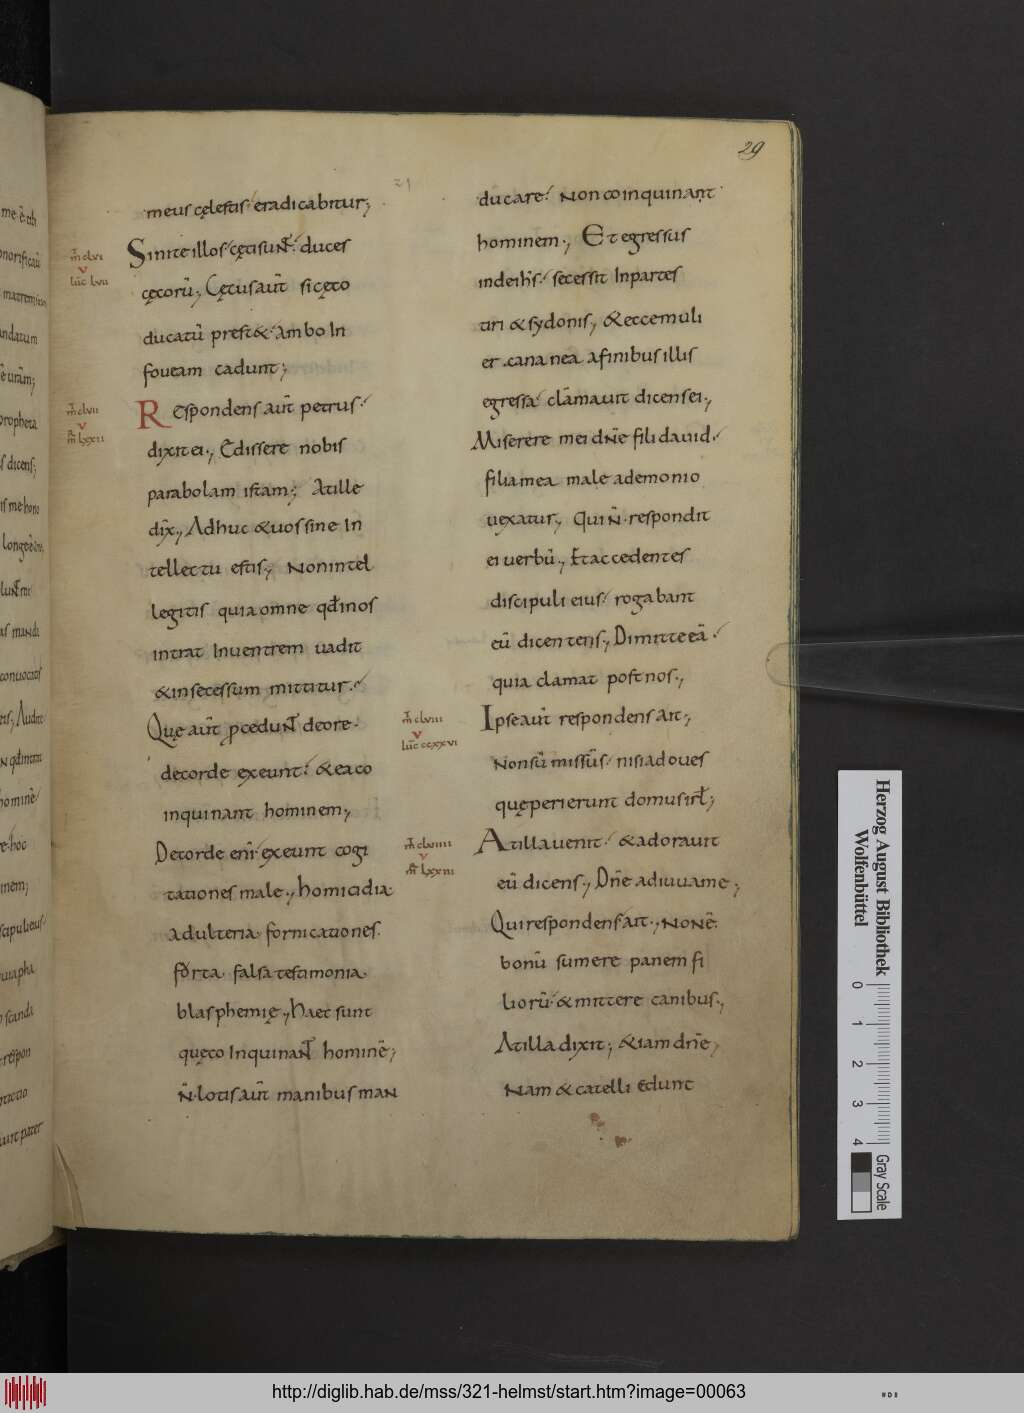 29
meus cęlestis eradicabitur;
Sinite illos cęti sunt̄ duces
cęcorū; Cęcus aut̄ si cęco
ducatū prest& ambo In
foueam cadunt;
Respondens aut̄ petrus
dixit ei; Edissere nobis
parabolam istam; At ille
dix̄; Adhuc &uos sine In
tellectu estis; Non intel
legitis quia omne qđ in os
intrat In uentrem uadit
& in secessum mittitur.
Quę aut̄ pcedunt̄ de ore.
de corde exeunt & ea co
inquinant hominem;
De corde eni exeunt cogi
tationes male; homicidia
adulteria fornicationes.
forta. falsa testimonia.
blasphemię; Haec sunt
quęco Inquinant̄ hominē;
N̄ lotis aut̄ manibus man
ducare. Non coinquinant
hominem; Et egressus
inde ih̄s. secessit In partes
tiri & sydonis; & ecce muli
er cananea a finibus illis
egressa clāmauit dicens ei;
Miserere mei dn̄e fili dauid.
filia mea male a demonio
uexatur; Qui N̄ respondit
ei uerbū; Et accedentes
discipuli eius rogabant
eū dicentens; Dimitte eā.
quia clamat post nos;
Ipse aut̄ respondens ait;
Non sū missūs nisi ad oues
quę perierunt domus isrł;
At illa uenit & adorauit
eū dicens; Dn̄e adiuua me;
Qui respondens ait; Non ē
bonū sumere panem fi
liorū & mittere canibus;
At illa dixit; &iam dn̄e;
Nam & catelli edunt
m̄ clvi
v
luc̄ lvii
m̄ clvii
v
m̄ lxxii
m̄ clviii
v
luc̄ ccxxvi
m̄ clviiii
v
m̄ lxxiii
Herzog August Bibliothek
Wolfenbüttel
0 1 2 3 4
Gray Scale
http://diglib.hab.de/mss/321-helmst/start.htm?image=00063